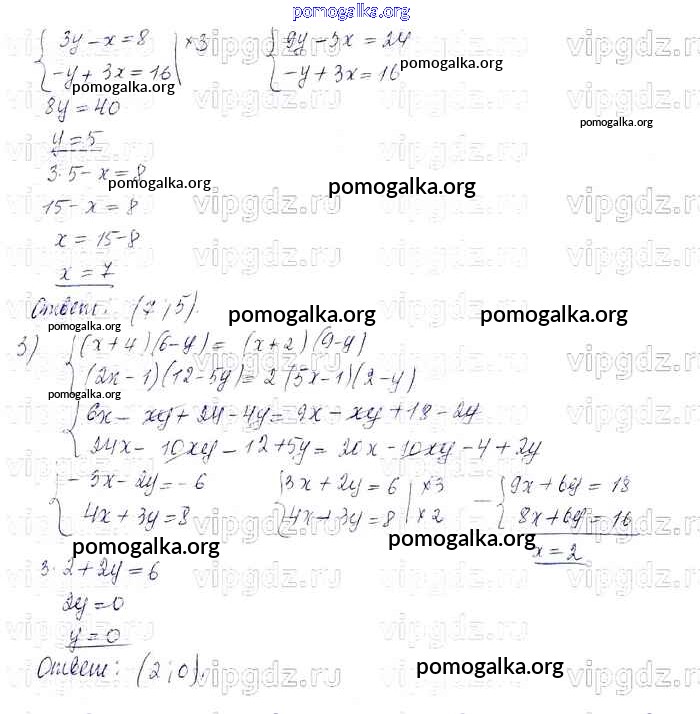 pomogalka.org
{ 3y - x = 8 | ×3 { 9y - 3x = 24
{ -y + 3x = 16 { -y + 3x = 16
pomogalka.org
pomogalka.org
8y = 40
pomogalka.org
y = 5
3·5 - x = 8
pomogalka.org
pomogalka.org
15 - x = 8
x = 15 - 8
x = 7
Ответ: (7; 5).
pomogalka.org
pomogalka.org
pomogalka.org
3) { (x+4)(6-y) = (x+2)(9-y)
{ (2x-1)(12-5y) = 2(5x-1)(2-y)
pomogalka.org
{ 6x - xy + 24 - 4y = 9x - xy + 18 - 2y
{ 24x - 10xy - 12 + 5y = 20x - 10xy - 4 + 2y
{ -3x - 2y = -6 { 3x + 2y = 6 | ×3 - { 9x + 6y = 18
{ 4x + 3y = 8 { 4x + 3y = 8 | ×2 { 8x + 6y = 16
pomogalka.org
pomogalka.org
x = 2
3·2 + 2y = 6
2y = 0
y = 0
Ответ: (2; 0).
pomogalka.org
vipgdz.ru